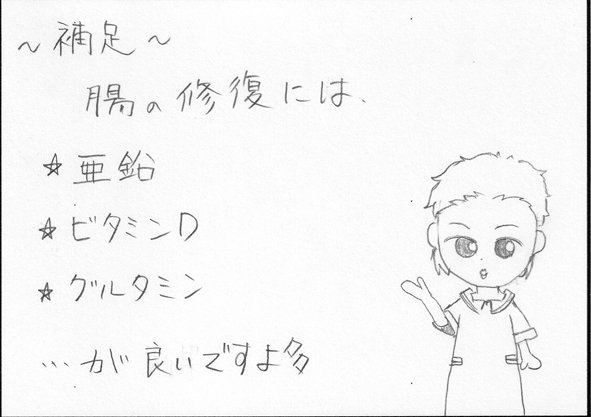 ～補足～
腸の修復には、
☆亜鉛
☆ビタミンD
☆グルタミン
…が良いですよ多